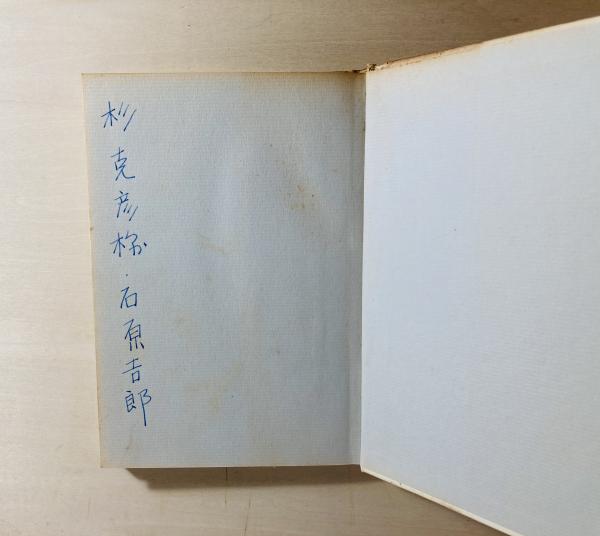 杉克彦様・石原吉郎